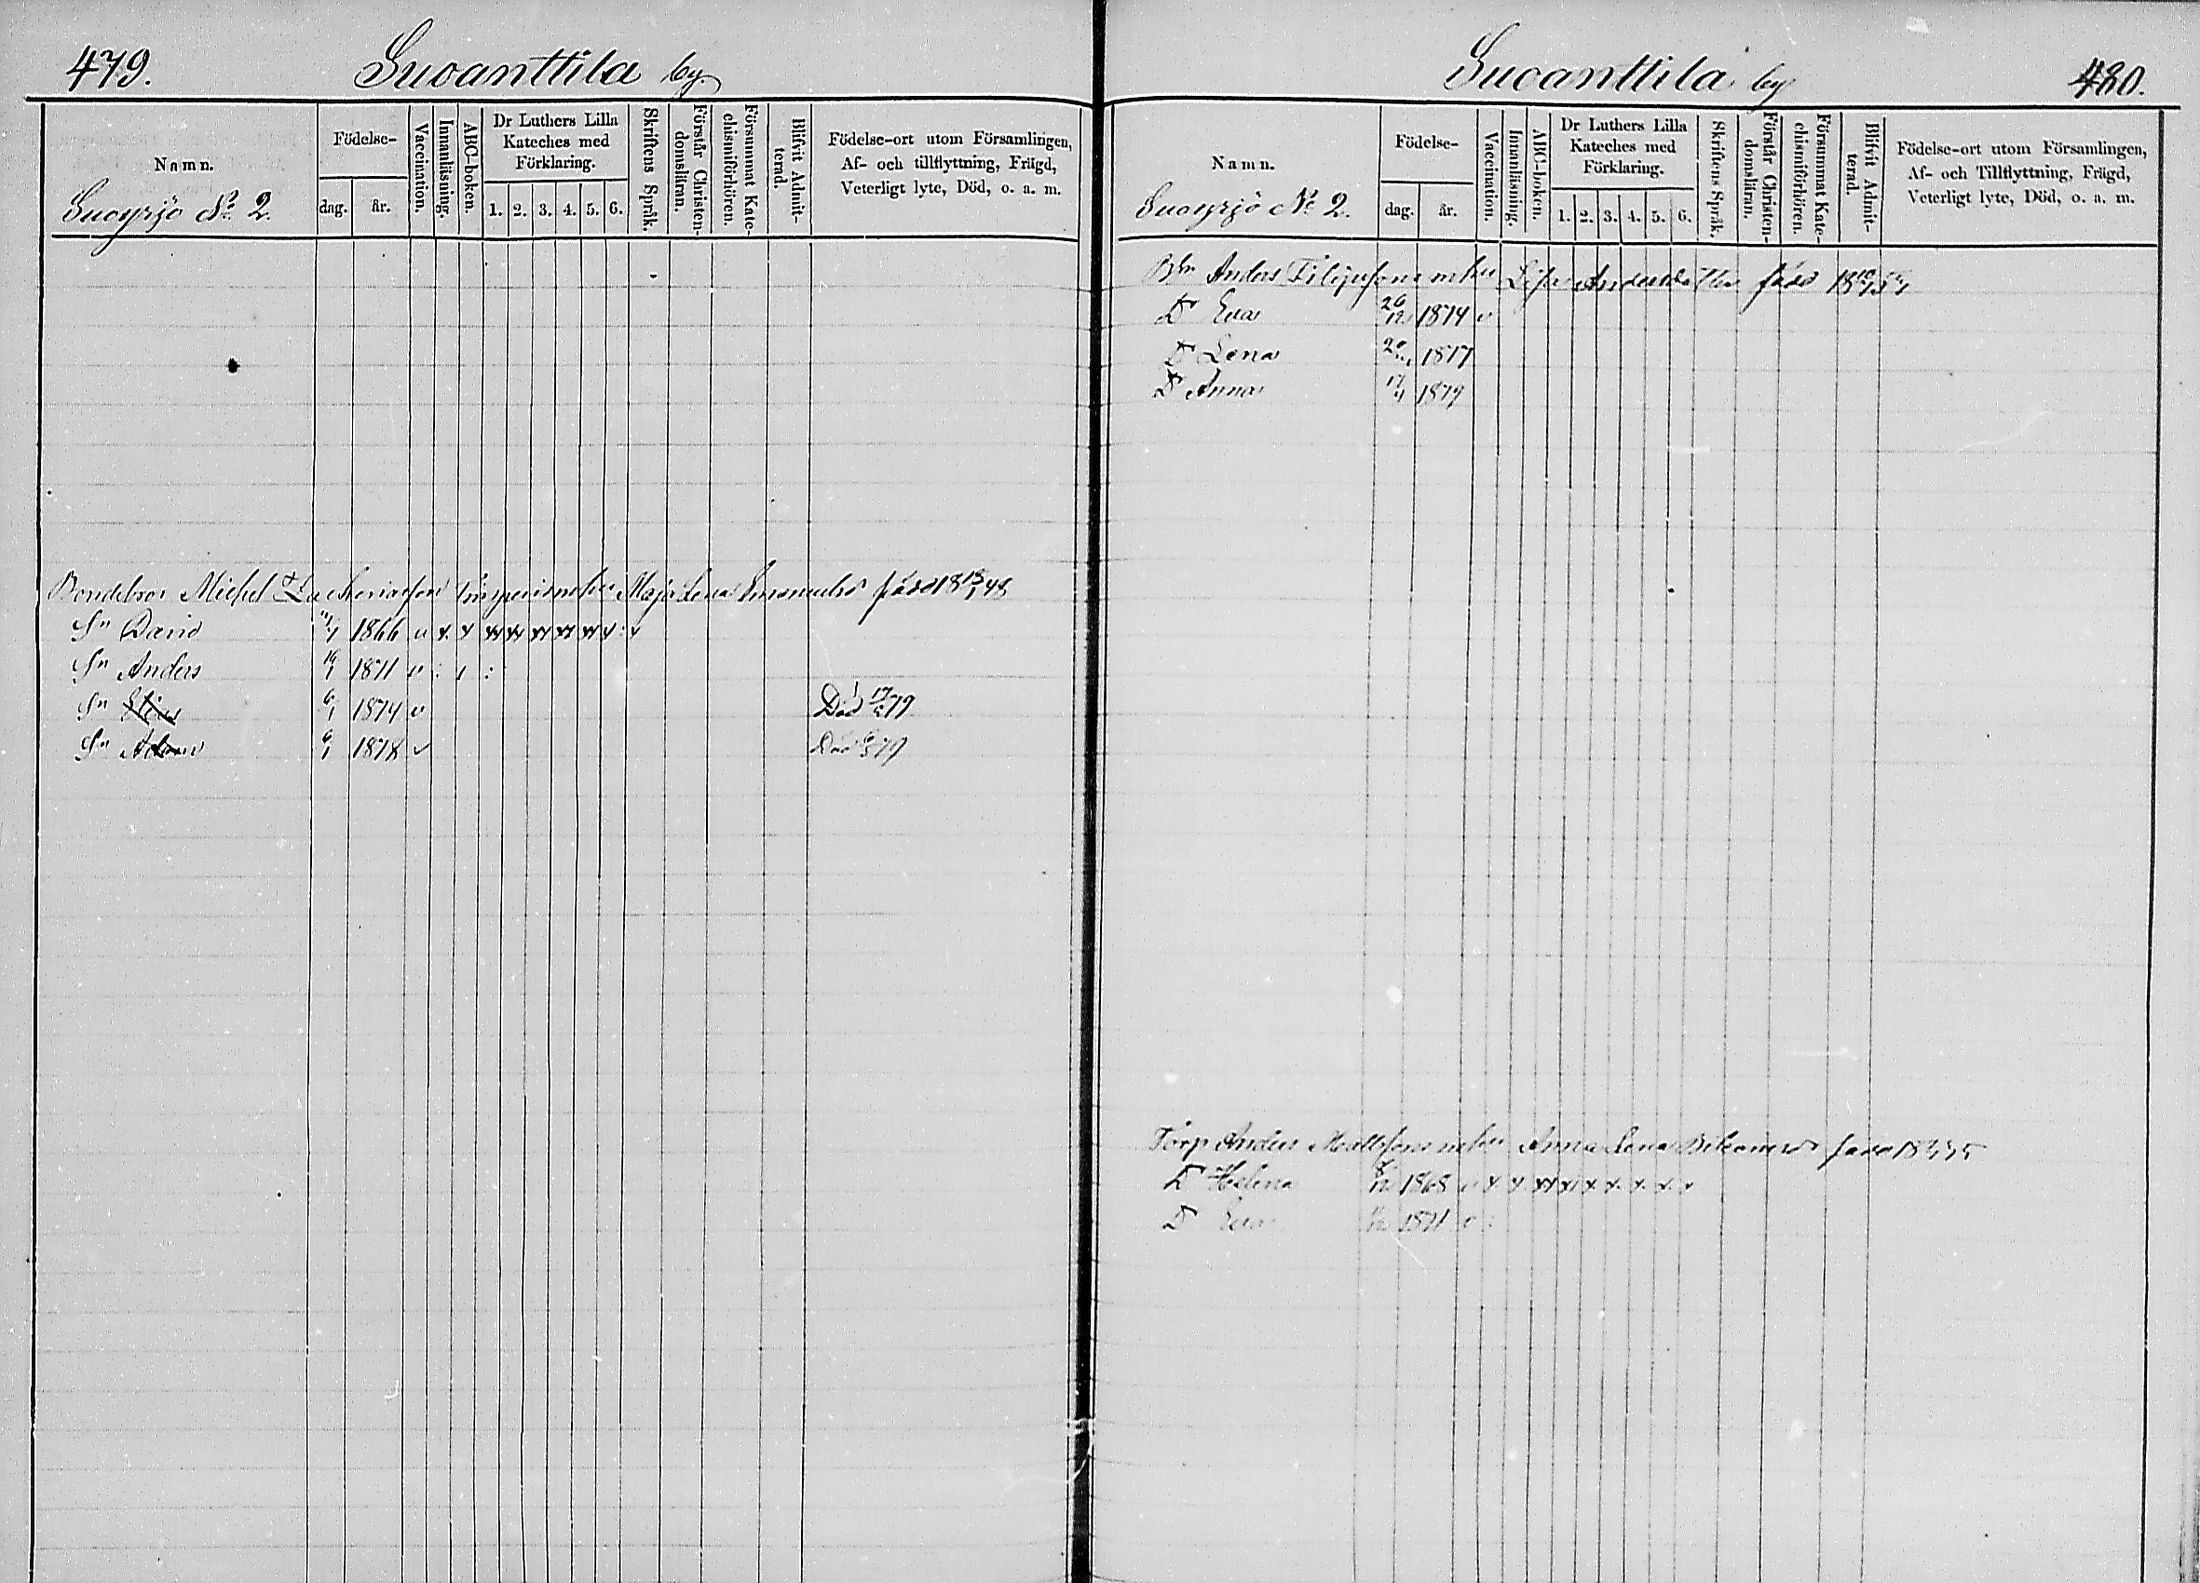 479. Suoanttila by.
Namn.
Födelse-
dag. år.
Vaccination.
Innanläsning.
ABC-boken.
Dr Luthers Lilla Kateches med Förklaring.
1. 2. 3. 4. 5. 6.
Skriftens Språk.
Förstår Christen-domsläran.
Försummat Kate-chismiförhören.
Blifvit Admit-terad.
Födelse-ort utom Församlingen, Af- och tillflyttning, Frägd, Veterligt lyte, Död, o. a. m.
Suoyrjö No 2.
Bondebror Michel Zachariasson Maja Lena född 18 48
Sn David 1866
Sn Anders 1871
Sn 1874 v Död 17 79
Sn Adam 6/1 1878 v Död 79
Suoanttila by 480.
Namn.
Födelse-
dag. år.
Vaccination.
Innanläsning.
ABC-boken.
Dr Luthers Lilla Kateches med Förklaring.
1. 2. 3. 4. 5. 6.
Skriftens Språk.
Förstår Christen-domsläran.
Försummat Kate-chismiförhören.
Blifvit Admit-terad.
Födelse-ort utom Församlingen, Af- och Tillflyttning, Frägd, Veterligt lyte, Död, o. a. m.
Suoyrjö No 2.
Anders Filipusson Lisa Andersdotter född
D Eva 26/12 1874 v
D Lena 1877
D Anna 17 1879
Torp Anders Mattsson Anna Lena född
D Helena 1868
D Eva 1871